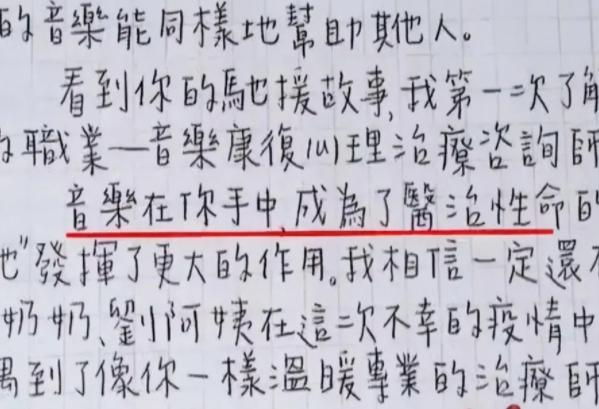 的音樂能同樣地幫助其他人。
看到你的馳援故事,我第一次了解
職業—音樂康復心理治療咨詢師
音樂在你手中,成為了醫治性命的
他"發揮了更大的作用。我相信一定還
奶奶、劉阿姨在這次不幸的疫情中
遇到了像你一樣溫暖專業的治療師